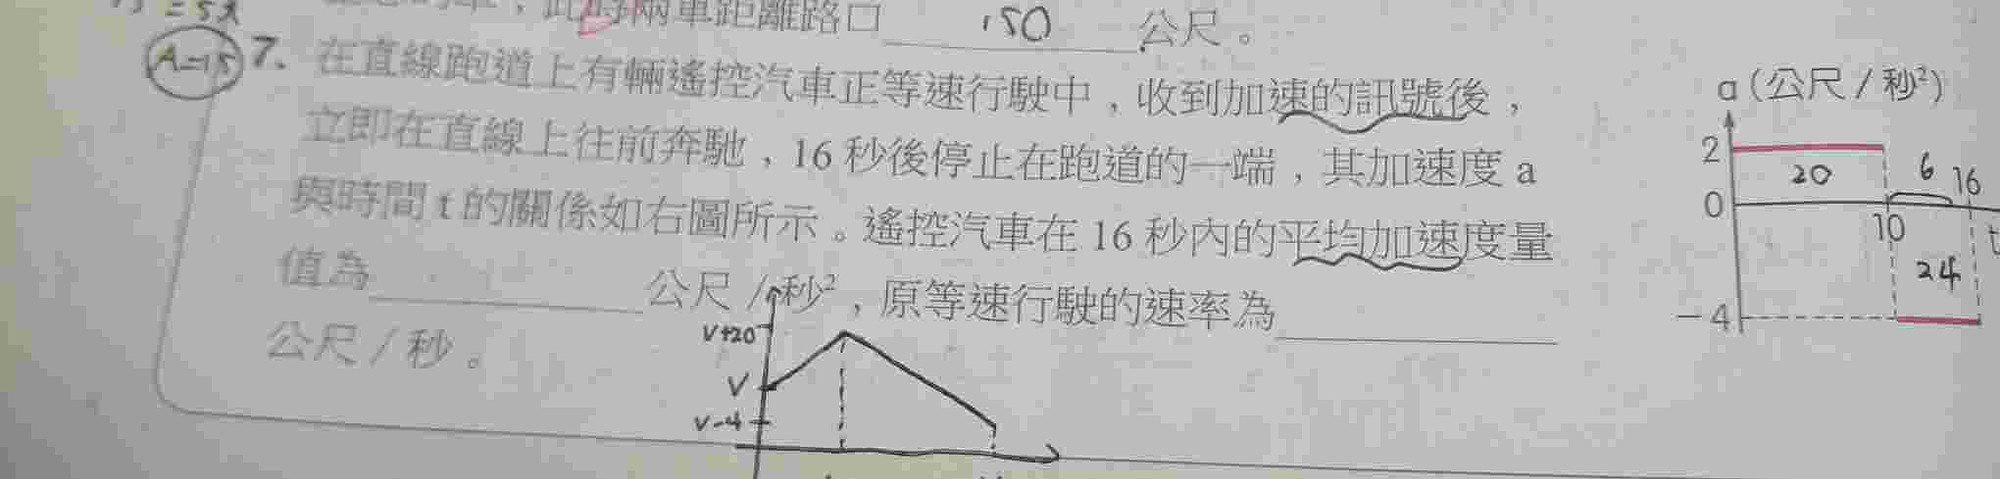 =5x
，此時兩車距離路口 150 公尺。
A=15 7. 在直線跑道上有輛遙控汽車正等速行駛中，收到加速的訊號後，
立即在直線上往前奔馳，16 秒後停止在跑道的一端，其加速度 a
與時間 t 的關係如右圖所示。遙控汽車在 16 秒內的平均加速度量
值為 公尺/秒²，原等速行駛的速率為
公尺/秒。
V+20
V
V-4
a (公尺/秒²)
2
20
6 16
0
10
t
24
-4